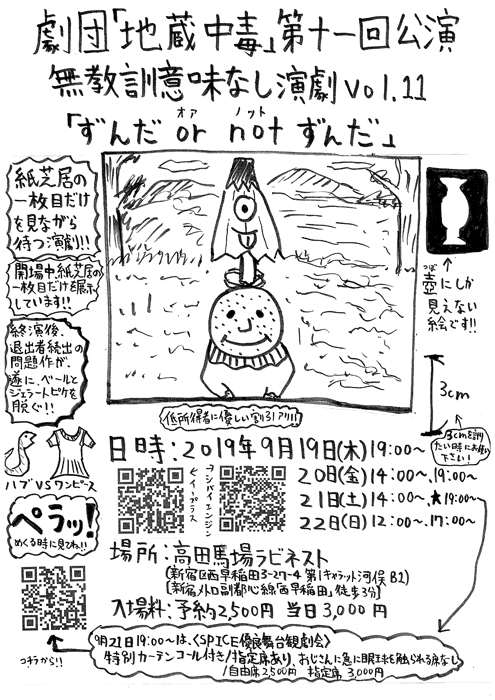 劇団「地蔵中毒」第十一回公演
無教訓意味なし演劇vol.11
「ずんだ or not ずんだ」
オア ノット
紙芝居の
一枚目だけ
を見ながら
待つ演劇!!
開場中紙芝居の
一枚目だけを展示
しています!!
終演後、
退出者続出の
問題作が、
遂に、ベールと
ジェラートピケを
脱ぐ!!
ハブVSワンピース
ペラッ!
めくる時に見てね!!
コチラから!!
つぼ
壺にしか
見えない
絵です!!
3cm
3cmを測り
たい時にお使い
下さい!
低所得者に優しい割引アリ!!
日時:2019年9月19日(木)19:00〜
20日(金)14:00〜、19:00〜
21日(土)14:00〜、★19:00〜
22日(日)12:00〜、17:00〜
イープラス
コンバイエンジン
場所:高田馬場ラビネスト
[新宿区西早稲田3-27-4 第1キャラット河俣B1]
[新宿メトロ副都心線「西早稲田」徒歩3分]
入場料:予約2,500円 当日3,000円
9月21日19:00〜は、〈SPICE優良舞台観劇会〉
特別カーテンコール付き/指定席あり、おじさんに急に眼球を触られる席なし
/自由席2500円 指定席3,000円